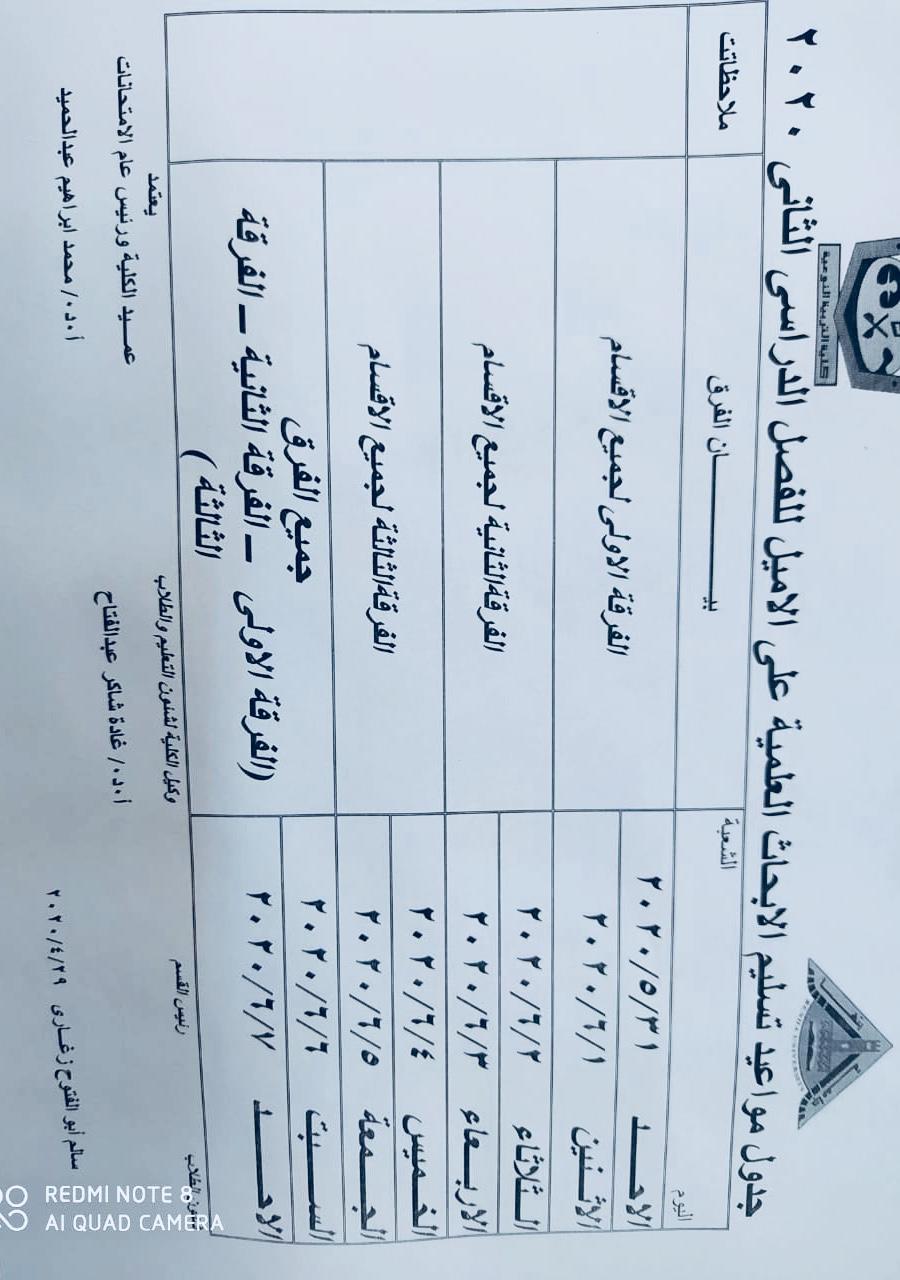 كلية التربية النوعية
جامعة بنها
BENHA UNIVERSITY
جدول مواعيد تسليم الابحاث العلمية على الاميل للفصل الدراسى الثانى ٢٠٢٠
الشعبة
اليوم
بيـــــــــان الفرق
ملاحظاتت
الاحــــد ٢٠٢٠/٥/٣١
الاثـــنين ٢٠٢٠/٦/١
الفرقة الاولى لجميع الاقسام
الـــثلاثاء ٢٠٢٠/٦/٢
الاربـــعاء ٢٠٢٠/٦/٣
الفرقةالثانية لجميع الاقسام
الخــميس ٢٠٢٠/٦/٤
الجـــمعة ٢٠٢٠/٦/٥
الفرقةالثالثة لجميع الاقسام
الســـبت ٢٠٢٠/٦/٦
الاحــــد ٢٠٢٠/٦/٧
جميع الفرق
(الفرقة الاولى – الفرقة الثانية – الفرقة
الثالثة )
شئون الطلاب
رئيس القسم
وكيل الكلية لشنون التعليم والطلاب
يعتمد
عمـــيد الكلية ورئيس عام الامتحانات
أ٠د٠/ غادة شاكر عبدالفتاح
أ٠د٠/ محمد ابراهيم عبدالحميد
سالم أبو الفتوح زغـارى ٢٠٢٠/٤/٢٩
REDMI NOTE 8
AI QUAD CAMERA